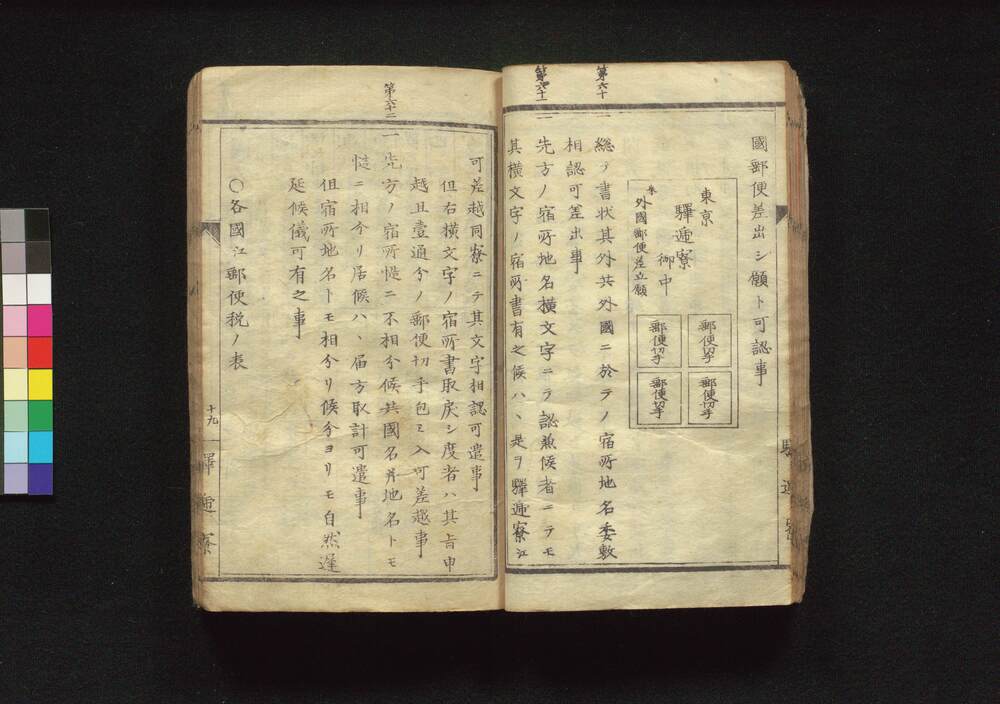 國郵便差出シ願ト可認事
東京
驛逓寮
御中
外國郵便差立願
郵便切手
郵便切手
郵便切手
郵便切手
第六十
一
總テ書状其外共外國ニ於テノ宿所地名委敷
相認可差出事
第六十一
一
先方ノ宿所地名横文字ニテ認兼候者ニテモ
其横文字ノ宿所書有之候ハヽ是ヲ驛逓寮江
可差越同寮ニテ其文字相認可遣事
但右横文字ノ宿所書取戻シ度者ハ其旨申
越且壹通分ノ郵便切手包ミ入可差越事
第六十二
一
先方ノ宿所慥ニ不相分候共國名并地名トモ
慥ニ相分リ居候ハヽ届方取計可遣事
但宿所地名トモ相分リ候分ヨリモ自然遲
延候儀可有之事
〇各國江郵便税ノ表
十九
驛逓寮